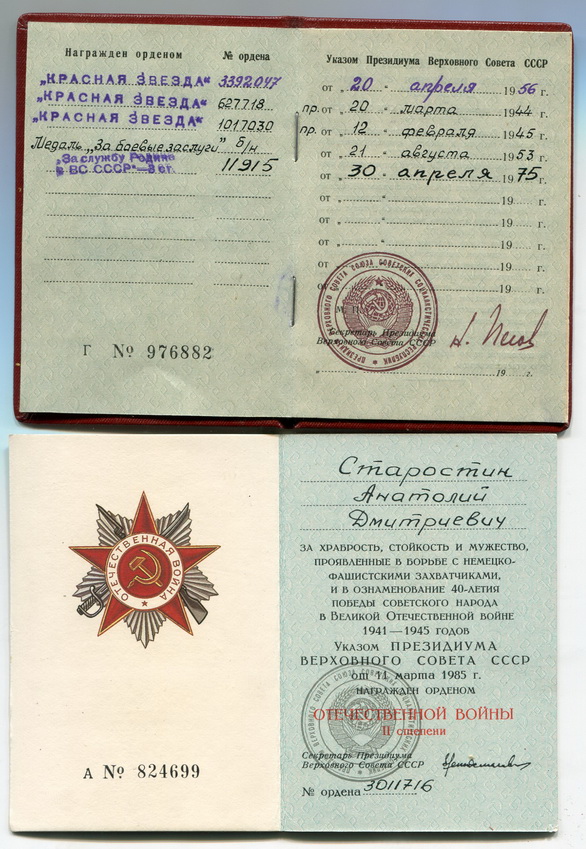 Награжден орденом № ордена
„КРАСНАЯ ЗВЕЗДА“ 3392047
„КРАСНАЯ ЗВЕЗДА“ 627718
„КРАСНАЯ ЗВЕЗДА“ 1017030
Медаль „За боевые заслуги” б/н
„За службу Родине
в ВС СССР“—3 ст. 11915
Г № 976882
Указом Президиума Верховного Совета СССР
от „20“ апреля 1956 г.
пр. от „20“ марта 1944 г.
пр. от „12“ февраля 1945 г.
от „21“ августа 1953 г.
от „30“ апреля 1975 г.
от „ “ 19 г.
от „ “ 19 г.
от „ “ 19 г.
от „ “ 19 г.
от „ “ 19 г.
М. П.
Секретарь Президиума
Верховного Совета СССР
19 г.
ПРЕЗИДИУМ ВЕРХОВНОГО СОВЕТА СОЮЗА СОВЕТСКИХ СОЦИАЛИСТИЧЕСКИХ РЕСПУБЛИК
ОТЕЧЕСТВЕННАЯ ВОЙНА
А № 824699
Старостин
Анатолий
Дмитриевич
ЗА ХРАБРОСТЬ, СТОЙКОСТЬ И МУЖЕСТВО,
ПРОЯВЛЕННЫЕ В БОРЬБЕ С НЕМЕЦКО-
ФАШИСТСКИМИ ЗАХВАТЧИКАМИ,
И В ОЗНАМЕНОВАНИЕ 40-ЛЕТИЯ
ПОБЕДЫ СОВЕТСКОГО НАРОДА
В ВЕЛИКОЙ ОТЕЧЕСТВЕННОЙ ВОЙНЕ
1941—1945 ГОДОВ
УКАЗОМ ПРЕЗИДИУМА
ВЕРХОВНОГО СОВЕТА СССР
от 11 марта 1985 г.
НАГРАЖДЕН ОРДЕНОМ
ОТЕЧЕСТВЕННОЙ ВОЙНЫ
II степени
Секретарь Президиума
Верховного Совета СССР
№ ордена 3011716